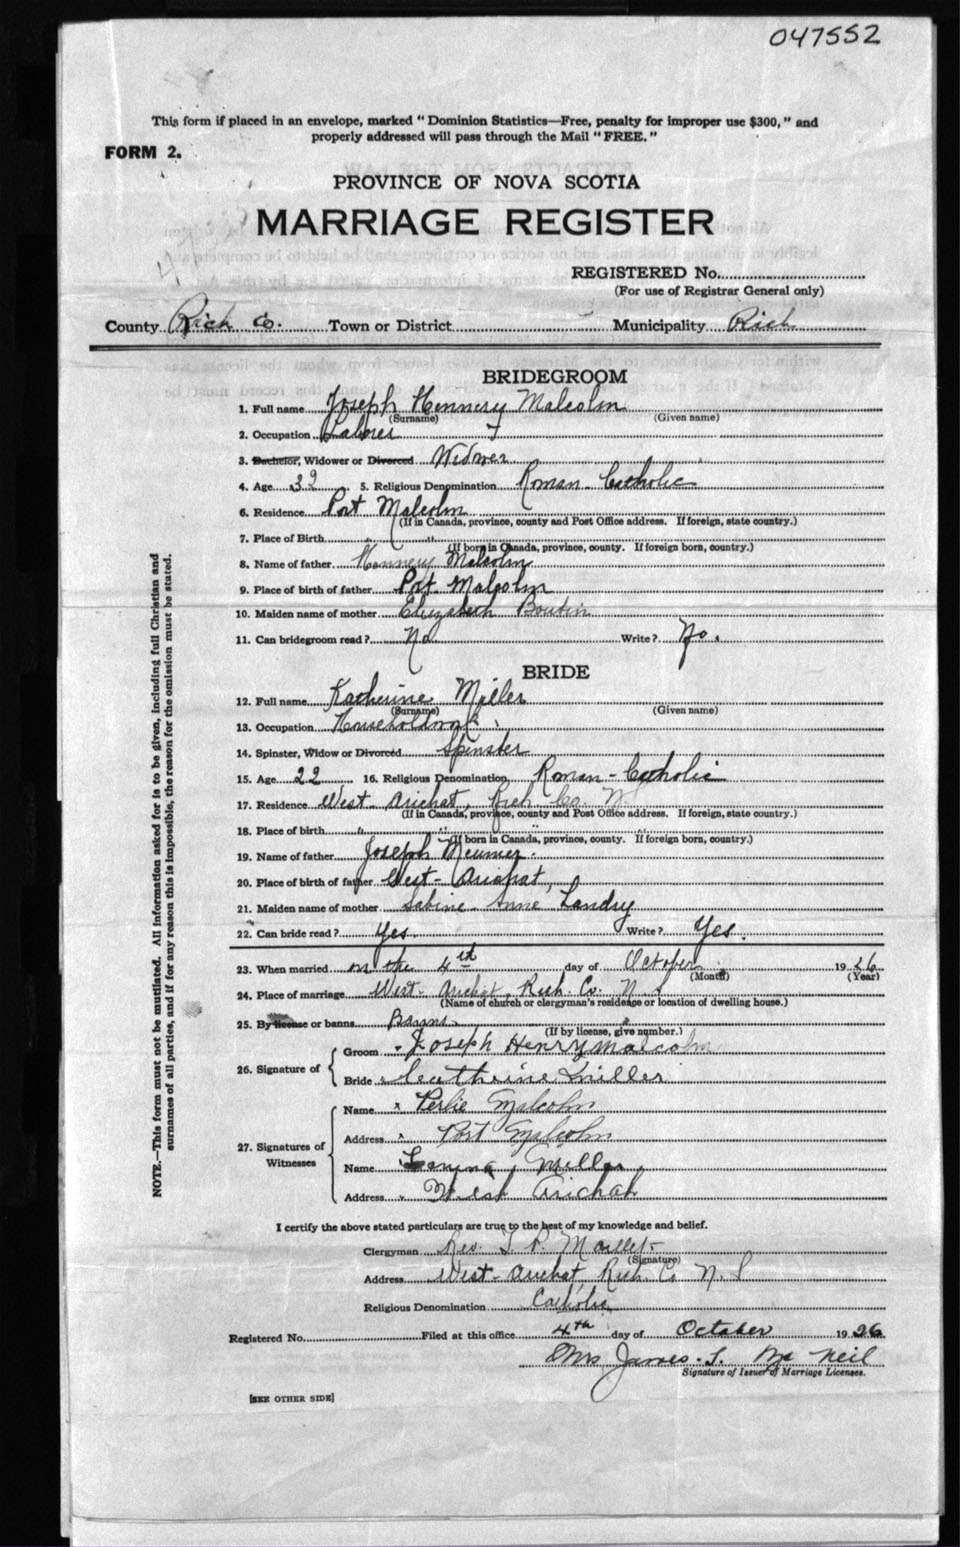 047552
This form if placed in an envelope, marked "Dominion Statistics—Free, penalty for improper use $300," and
properly addressed will pass through the Mail "FREE."
FORM 2.
PROVINCE OF NOVA SCOTIA
MARRIAGE REGISTER
REGISTERED No.
(For use of Registrar General only)
County Rich Co. Town or District Municipality Rich
BRIDEGROOM
1. Full name Joseph Hennery Malcolm
(Surname) (Given name)
2. Occupation Laborer
3. Bachelor, Widower or Divorced Widwer
4. Age 32 5. Religious Denomination Roman Catholic
6. Residence Port Malcolm
(If in Canada, province, county and Post Office address. If foreign, state country.)
7. Place of Birth " "
(If born in Canada, province, county. If foreign born, country.)
8. Name of father Hennery Malcolm
9. Place of birth of father Port Malcolm
10. Maiden name of mother Elizabeth Boutin
11. Can bridegroom read? No Write? No.
BRIDE
12. Full name Katherine Miller
(Surname) (Given name)
13. Occupation
14. Spinster, Widow or Divorced Spinster
15. Age 22 16. Religious Denomination Roman-Catholic
17. Residence West-Arichat, Rich Co. N.S
(If in Canada, province, county and Post Office address. If foreign, state country.)
18. Place of birth " " "
(If born in Canada, province, county. If foreign born, country.)
19. Name of father Joseph
20. Place of birth of father West-Arichat,
21. Maiden name of mother Sabine Anne Landry
22. Can bride read? Yes. Write? Yes.
23. When married on the 4th day of October 1926
(Month) (Year)
24. Place of marriage West-Arichat, Rich. Co. N S
(Name of church or clergyman's residence or location of dwelling house.)
25. By license or banns Banns
(If by license, give number.)
26. Signature of
Groom Joseph Henry Malcolm
Bride Catherine Miller
27. Signatures of Witnesses
Name x Malcolm
Address x Port Malcolm
Name Miller
Address West Arichat
I certify the above stated particulars are true to the best of my knowledge and belief.
Clergyman Rev.
(Signature)
Address West-Arichat, Rich. Co N.S
Religious Denomination Catholic
Registered No. Filed at this office 4th day of October 1926
Mrs James. Mc Neil
Signature of Issuer of Marriage Licenses.
[SEE OTHER SIDE]
NOTE.—This form must not be mutilated. All information asked for is to be given, including full Christian and
surnames of all parties, and if for any reason this is impossible, the reason for the omission must be stated.